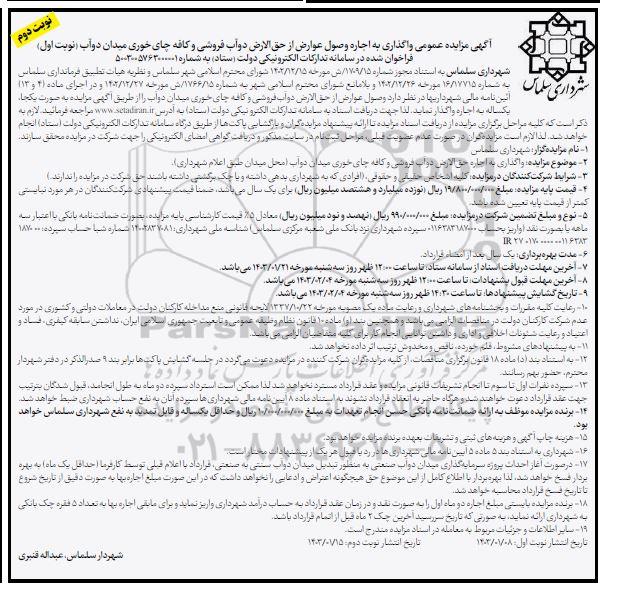 نوبت دوم
آگهی مزایده عمومی واگذاری به اجاره وصول عوارض از حق‌الارض دوآب فروشی و کافه چای خوری میدان دوآب (نوبت اول)
فراخوان شده در سامانه تدارکات الکترونیکی دولت (ستاد) به شماره ۵۰۰۳۰۰۵۷۶۳۰۰۰۰۰۱
شهرداری سلماس
شهرداری سلماس به استناد مجوز شماره ۱۷۰۹/۱۵/ش مورخه ۱۴۰۲/۱۲/۱۵ شورای محترم اسلامی شهر سلماس و نظریه هیات تطبیق فرمانداری سلماس
به شماره ۱۶/۱۷۷۱۵ مورخه ۱۴۰۲/۱۲/۲۶ و بلامانع شورای محترم اسلامی شهر به شماره ۱۷۶۶/۱۵/ش مورخه ۱۴۰۲/۱۲/۲۷ و در اجرای ماده (۴ و ۱۳)
آئین‌نامه مالی شهرداریها در نظر دارد وصول عوارض از حق الارض دواب فروشی و کافه چای خوری میدان دوآب را از طریق آگهی مزایده به صورت یکجا،
یکساله به اجاره واگذار نماید. لذا جهت دریافت اسناد به سامانه تدارکات الکترونیکی دولت (ستاد) به آدرس www.setadiran.ir مراجعه فرمائید. لازم به
ذکر است که کلیه مراحل برگزاری مزایده از دریافت اسناد مزایده تا ارائه پیشنهاد مزایده‌گران و بازگشایی پاکت‌ها از طریق درگاه سامانه تدارکات الکترونیکی دولت (ستاد) انجام
خواهد شد. لذا لازم است مزایده‌گران در صورت عدم عضویت قبلی، مراحل ثبت‌نام در سایت مذکور و دریافت گواهی امضای الکترونیکی را جهت شرکت در مزایده محقق سازند.
۱- نام مزایده‌گزار: شهرداری سلماس
۲- موضوع مزایده: واگذاری به اجاره حق‌الارض دوآب فروشی و کافه چای خوری میدان دوآب (محل میدان طبق اعلام شهرداری).
۳- شرایط شرکت‌کنندگان در مزایده: کلیه اشخاص حقیقی و حقوقی، (افرادی که به شهرداری بدهی داشته و یا چک برگشتی داشته باشند حق شرکت در مزایده را ندارند.)
۴- قیمت پایه مزایده: مبلغ ۱۹/۸۰۰/۰۰۰/۰۰۰ ریال (نوزده میلیارد و هشتصد میلیون ریال) برای یک سال می‌باشد، ضمناً قیمت پیشنهادی شرکت‌کنندگان در هر مورد نبایستی
کمتر از قیمت پایه تعیین شده باشد.
۵- نوع و مبلغ تضمین شرکت درمزایده: مبلغ ۹۹۰/۰۰۰/۰۰۰ ریال (نهصد و نود میلیون ریال) معادل ۵٪ قیمت کارشناسی پایه مزایده، بصورت ضمانت‌نامه بانکی با اعتبار سه
ماهه یا بصورت نقد (واریز بحساب ۰۱۱۶۳۸۳۱۸۷۰۰۰ سپرده شهرداری نزد بانک ملی شعبه مرکزی سلماس) شناسه ملی شهرداری: ۱۴۰۰۲۸۳۷۰۸۱ شماره شبا حساب سپرده:
۶- مدت بهره‌برداری: یک سال بعد از امضاء قرارداد.
۷- آخرین مهلت دریافت اسناد از سامانه ستاد: تا ساعت ۱۲:۰۰ ظهر روز سه‌شنبه مورخه ۱۴۰۳/۰۱/۲۱ می‌باشد.
۸- آخرین مهلت قبول پیشنهادات: تا ساعت ۱۲:۰۰ ظهر روز سه‌شنبه مورخه ۱۴۰۳/۰۲/۰۴ می‌باشد.
۹- تاریخ گشایش پیشنهادها: تا ساعت ۱۴:۳۰ ظهر روز سه‌شنبه مورخه ۱۴۰۳/۰۲/۰۴ می‌باشد.
۱۰- رعایت کلیه مقررات و بخشنامه‌های شهرداری و رعایت ماده یک مصوبه مورخه ۱۳۳۷/۱۰/۲۲ لایحه قانونی منع مداخله کارکنان دولت در معاملات دولتی و کشوری در مورد
عدم شرکت کارکنان دولت در مناقصات الزامی می‌باشد و همچنین بند (و) ماده ۱۰ قانون نظام وظیفه عمومی و تابعیت جمهوری اسلامی ایران، نداشتن سابقه کیفری، فساد و
اعتیاد و رعایت شئونات اخلاقی و اداری و داشتن توانایی انجام کار برای کلیه متقاضیان الزامی می‌باشد.
۱۱- به پیشنهادهای مشروط، قلم خورده، ناقص و مخدوش ترتیب اثر داده نخواهد شد.
۱۲- به استناد بند (د) ماده ۱۸ قانون برگزاری مناقصات، از کلیه مزایده‌گران شرکت کننده در مزایده دعوت می‌گردد در جلسه گشایش پاکت‌ها برابر بند ۹ صدرالذکر در دفتر شهردار
محترم، حضور بهم رسانند.
۱۳- سپرده نفرات اول تا سوم تا انجام تشریفات قانونی مزایده و عقد قرارداد مسترد نخواهد شد لذا ممکن است استرداد سپرده دو ماه به طول انجامد، قبول شدگان بترتیب
جهت عقد قرارداد دعوت خواهند شد و هرگاه حاضر به انعقاد قرارداد نشوند به استناد ماده ۸ آیین نامه مالی شهرداری‌ها سپرده آنان به نفع حساب شهرداری ضبط خواهد شد.
۱۴- برنده مزایده موظف به ارائه ضمانت‌نامه بانکی حسن انجام تعهدات به مبلغ ۱۰/۰۰۰/۰۰۰/۰۰۰ ریال و حداقل یکساله و قابل تمدید به نفع شهرداری سلماس خواهد
بود.
۱۵- هزینه چاپ آگهی و هزینه‌های ثبتی و تشریفات بعهده برنده مزایده خواهد بود.
۱۶- شهرداری به استناد بند ۵ ماده ۵ آیین نامه مالی شهرداری‌ها در رد یا قبول هر یک از پیشنهادات مختار است.
۱۷- درصورت آغاز احداث پروژه سرمایه‌گذاری میدان دوآب صنعتی به منظور تبدیل میدان دوآب سنتی به صنعتی، قرارداد با اعلام قبلی توسط کارفرما (حداقل یک ماه) به بهره
بردار فسخ خواهد شد، لذا بهره‌بردار با اطلاع کامل از این موضوع حق هیچگونه اعتراض و ادعایی را نخواهد داشت که در این صورت مبلغ اجاره‌بها به صورت دقیق از تاریخ شروع
تا تاریخ فسخ قرارداد محاسبه خواهد شد.
۱۸- برنده مزایده بایستی مبلغ اجاره دو ماه اول را به صورت نقد و در زمان عقد قرارداد به حساب درآمد شهرداری واریز نماید و برای مابقی اجاره بها به تعداد ۵ فقره چک بانکی
به شهرداری ارائه نماید، به‌صورتی که تاریخ سررسید آخرین چک ۲ ماه قبل از اتمام قرارداد باشد.
۱۹- سایر اطلاعات و جزئیات مربوط به معامله در اسناد مزایده مندرج است.
تاریخ انتشار نوبت اول: ۱۴۰۳/۰۱/۰۸ تاریخ انتشار نوبت دوم: ۱۴۰۳/۰۱/۱۵
شهردار سلماس، عبداله قنبری